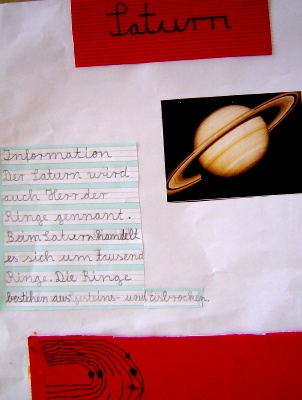 Saturn
Information
Der Saturn wird
auch Herr der
Ringe gennant.
Beim Saturn handelt
es sich um tausend
Ringe. Die Ringe
bestehen aus Gesteins- und Eisbrocken.